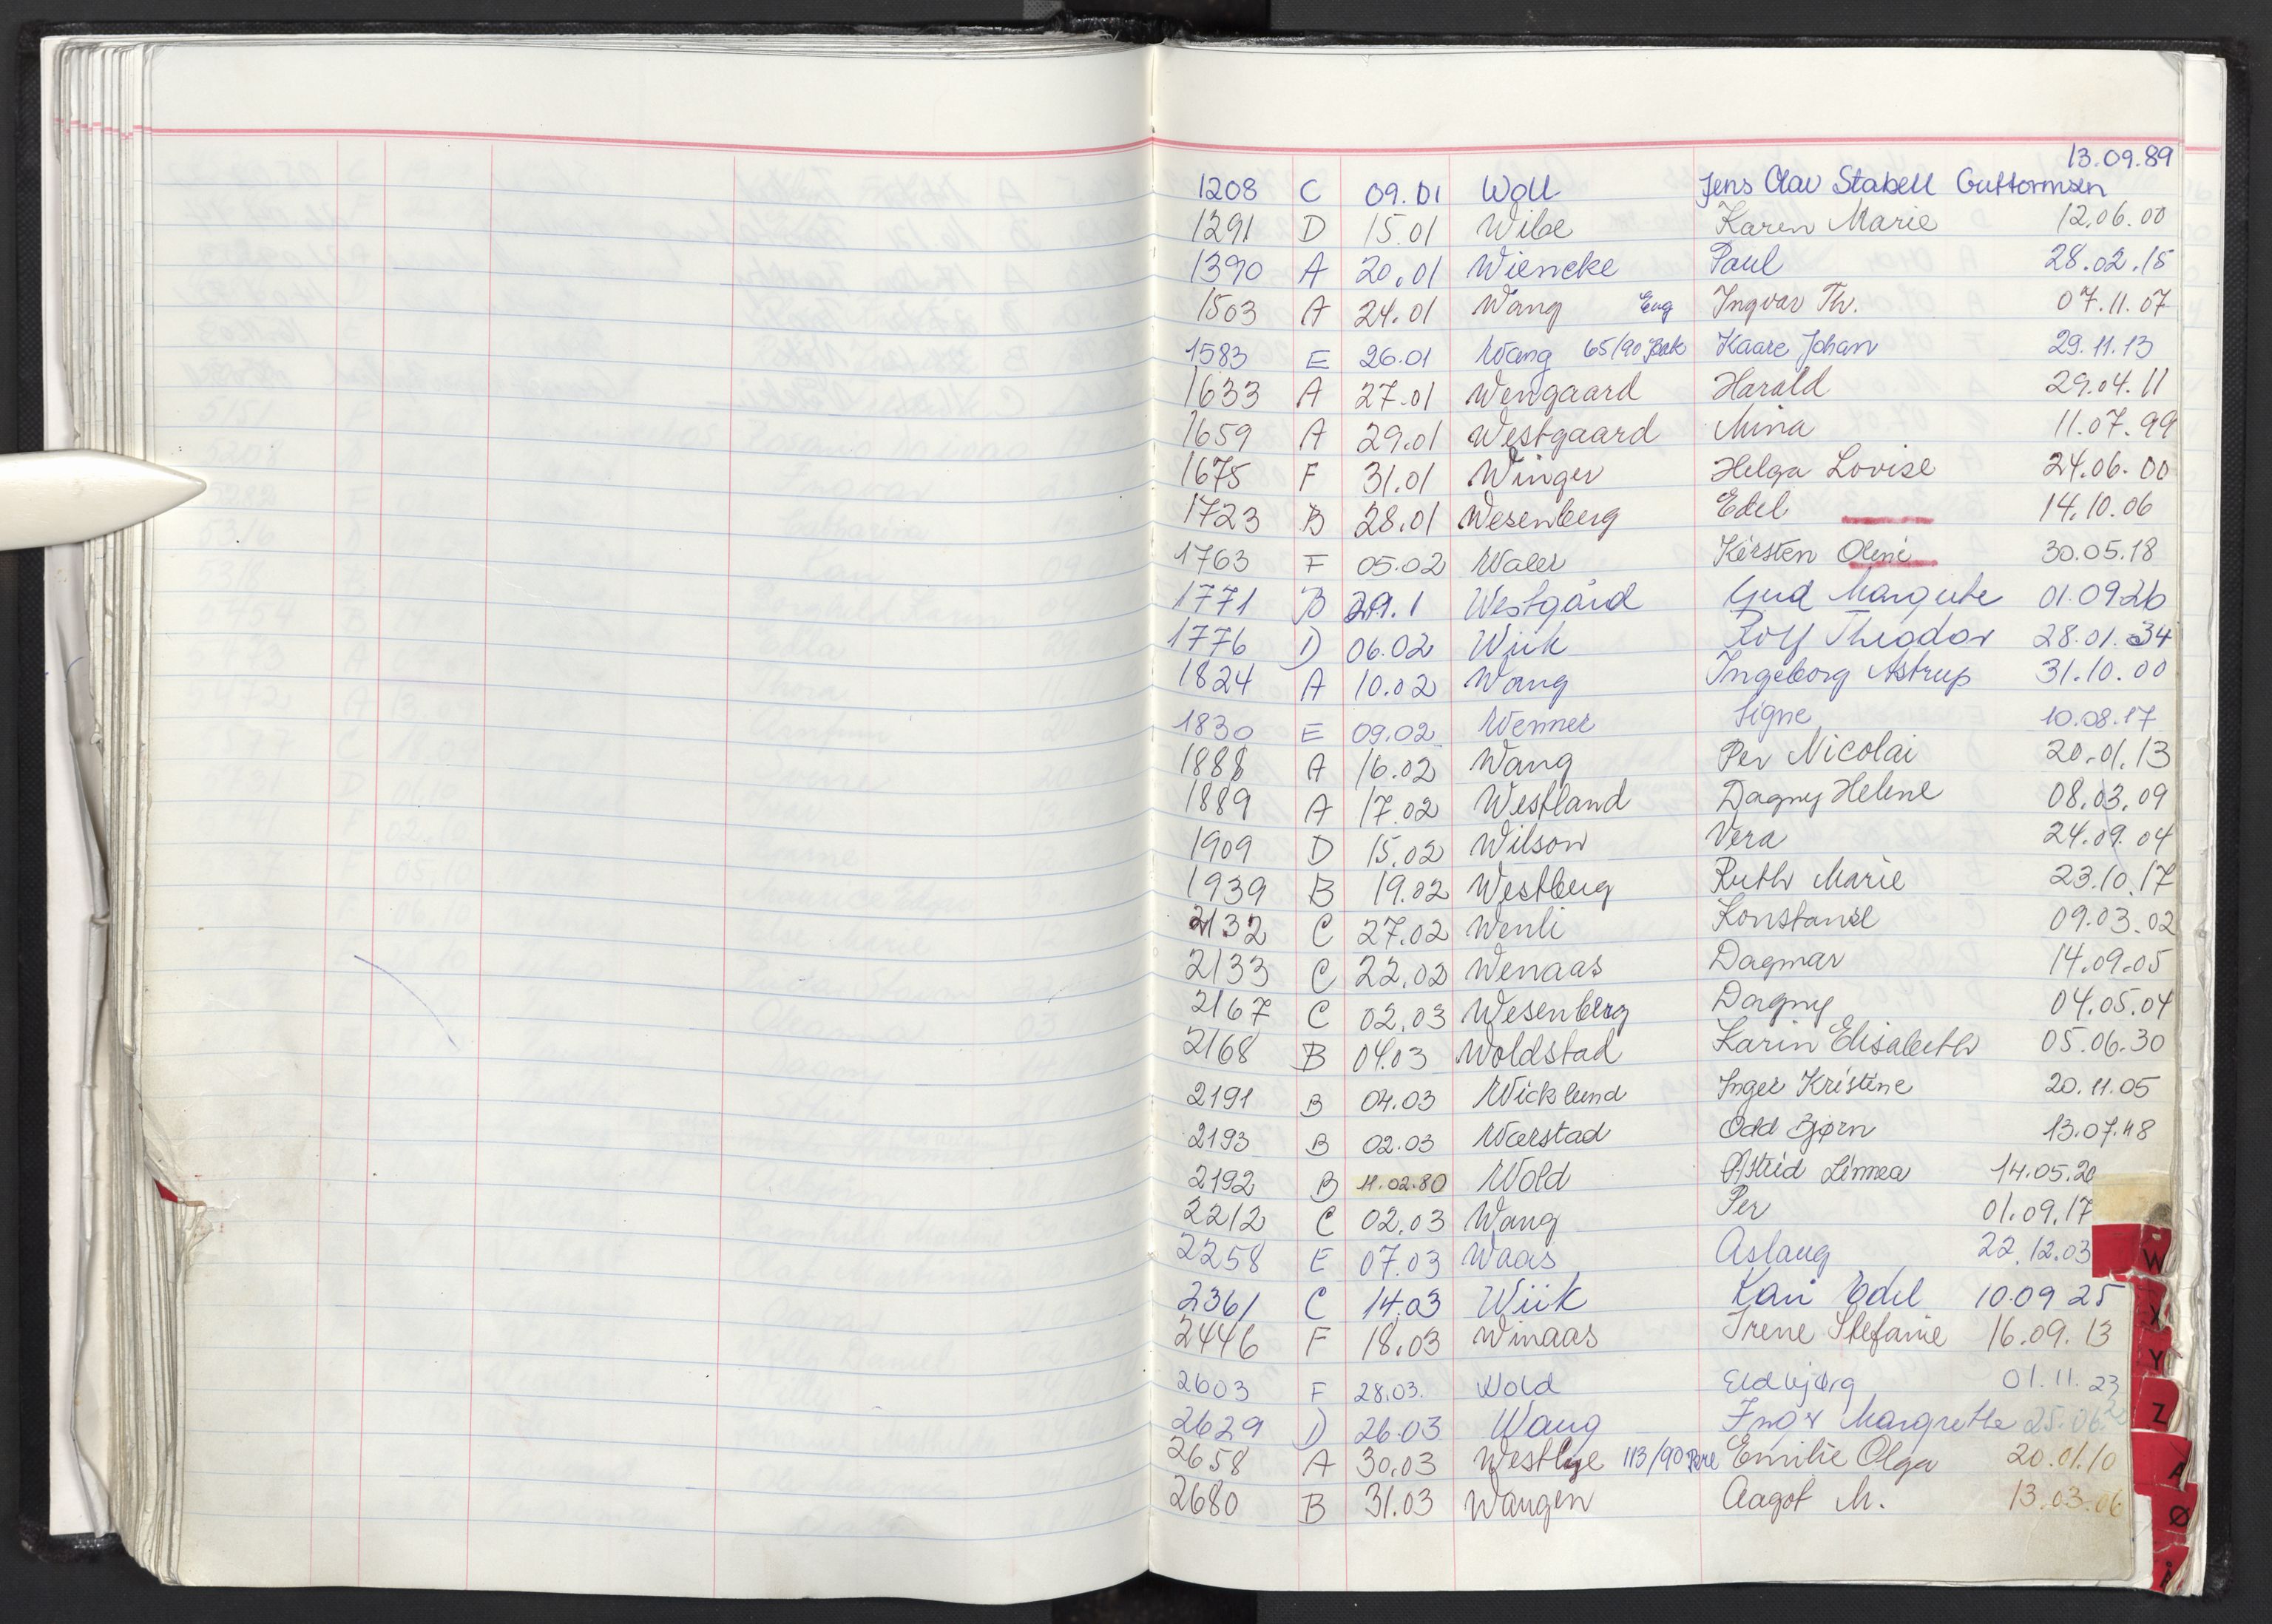 13.09.89
1208 C 09.01 Woll Jens Olav Stabell Guttormsen
1291 D 15.01 Wibe Karen Marie 12.06.00
1390 A 20.01 Wiencke Paul 28.02.15
1503 A 24.01 Wang Eug Ingvar Th. 07.11.07
1583 E 26.01 Wang 65/90 Kaare Johan 29.11.13
1633 A 27.01 Wengaard Harald 29.04.11
1659 A 29.01 Westgaard Mina 11.07.99
1675 F 31.01 Winger Helga Lovise 24.06.00
1723 B 28.01 Wesenberg Edel 14.10.06
1763 F 05.02 Waler Kirsten Oline 30.05.18
1771 B 29.1 Westgård Gud Margrete 01.09.26
1776 D 06.02 Wiik Rolf Theodor 28.01.34
1824 A 10.02 Wang Ingeborg Astrup 31.10.00
1830 E 09.02 Wenner Signe 10.08.17
1888 A 16.02 Wang Per Nicolai 20.01.13
1889 A 17.02 Westland Dagny Helene 08.03.09
1909 D 15.02 Wilson Vera 24.09.04
1939 B 19.02 Westberg Ruth Marie 23.10.17
2132 C 27.02 Wenli Konstanse 09.03.02
2133 C 22.02 Wenaas Dagmar 14.09.05
2167 C 02.03 Wesenberg Dagny 04.05.04
2168 B 04.03 Woldstad Karin Elisabeth 05.06.30
2191 B 04.03 Wicklund Inger Kristine 20.11.05
2193 B 02.03 Warstad Odd Bjørn 13.07.48
2192 B 11.02.80 Wold Astrid Linnea 14.05.20
2212 C 02.03 Wang Per 01.09.17
2258 E 07.03 Waas Aslaug 22.12.03
2361 C 14.03 Wiik Kari Edel 10.09 25
2446 F 18.03 Winaas Irene Stefanie 16.09.13
2603 F 28.03. Wold Eldbjørg 01.11.23
2629 D 26.03 Wang Inger Margrethe 25.06.
2658 A 30.03 Westlye 113/90 Emilie Olga 20.01.10
2680 B 31.03 Wangen Aagot M. 13.03.06
W
X
Y
Z
Æ
Ø
Å